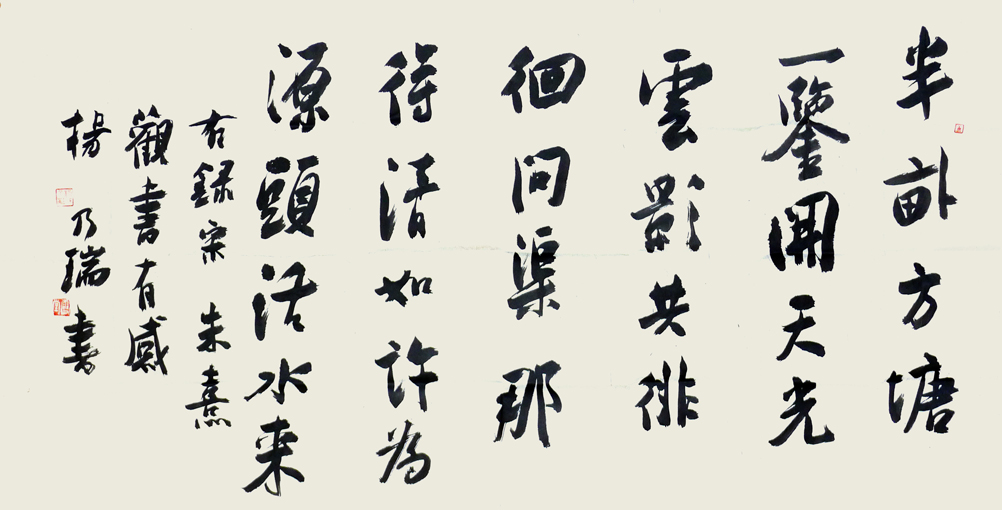 半畝方塘
一鑒開天光
雲影共徘
徊問渠那
得清如許為
源頭活水来
右録宋朱熹
觀書有感
楊乃瑞書